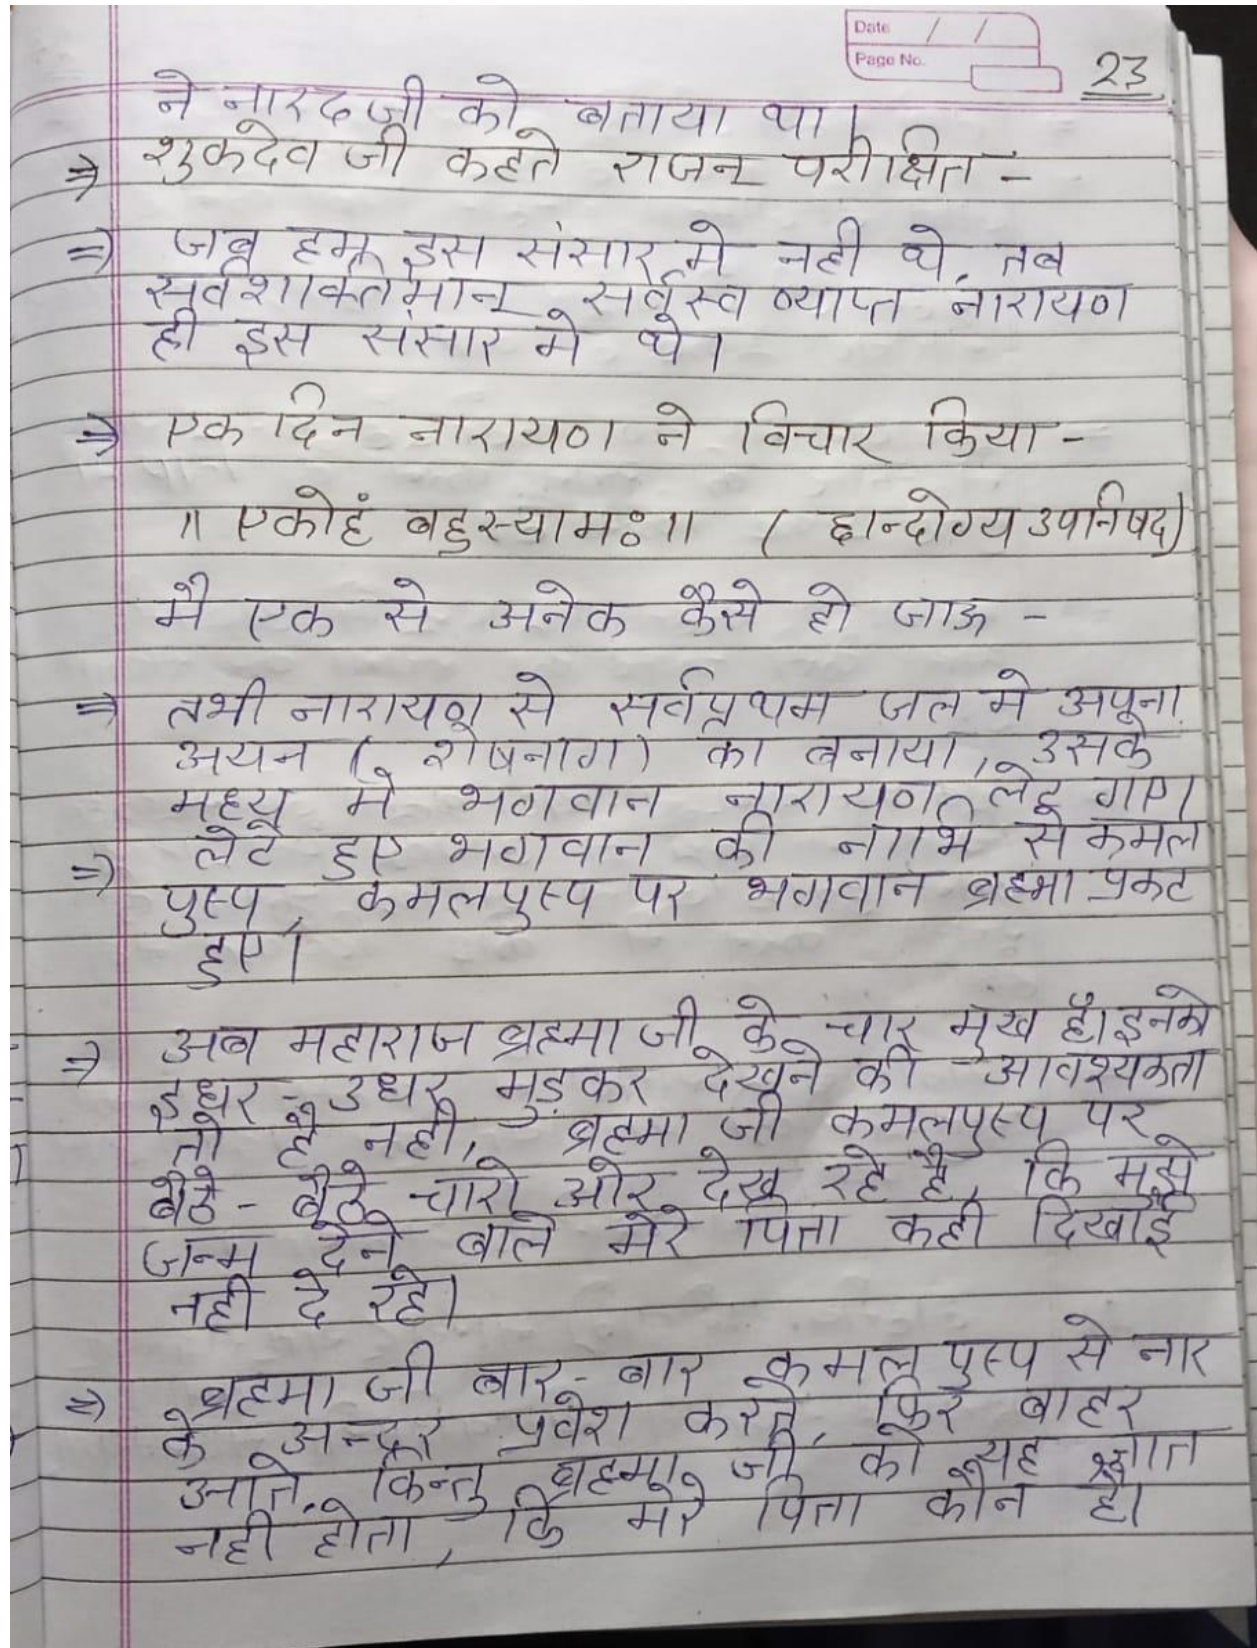 Date / /
Page No.
23
ने नारद जी को बताया था।
⇒ शुकदेव जी कहते राजन् परीक्षित -
⇒ जब हम इस संसार मे नही थे, तब
सर्वशक्तिमान् सर्वस्व व्याप्त नारायण
ही इस संसार मे थे।
⇒ एक दिन नारायण ने विचार किया -
॥ एकोहं बहुस्यामः॥ ( छान्दोग्य उपनिषद)
मै एक से अनेक कैसे हो जाऊ -
⇒ तभी नारायण से सर्वप्रथम जल मे अपना
अयन ( शेषनाग) का बनाया, उसके
मध्य मे भगवान नारायण लेट गए।
⇒ लेटे हुए भगवान की नाभि से कमल
पुष्प, कमलपुष्प पर भगवान ब्रह्मा प्रकट
हुए।
⇒ अब महाराज ब्रहमा जी के चार मुख है। इनको
इधर - उधर मुड़कर देखने की आवश्यकता
तो है नही, ब्रहमा जी कमलपुष्प पर
बैठे - बैठे चारो ओर देख रहे है, कि मुझे
जन्म देने बाले मेरे पिता कही दिखाई
नही दे रहे।
⇒ ब्रहमा जी बार - बार कमल पुष्प से नार
के अन्दर प्रवेश करते, फिर बाहर
आते, किन्तु ब्रहमा जी को यह ज्ञात
नही होता, कि मेरे पिता कौन है।